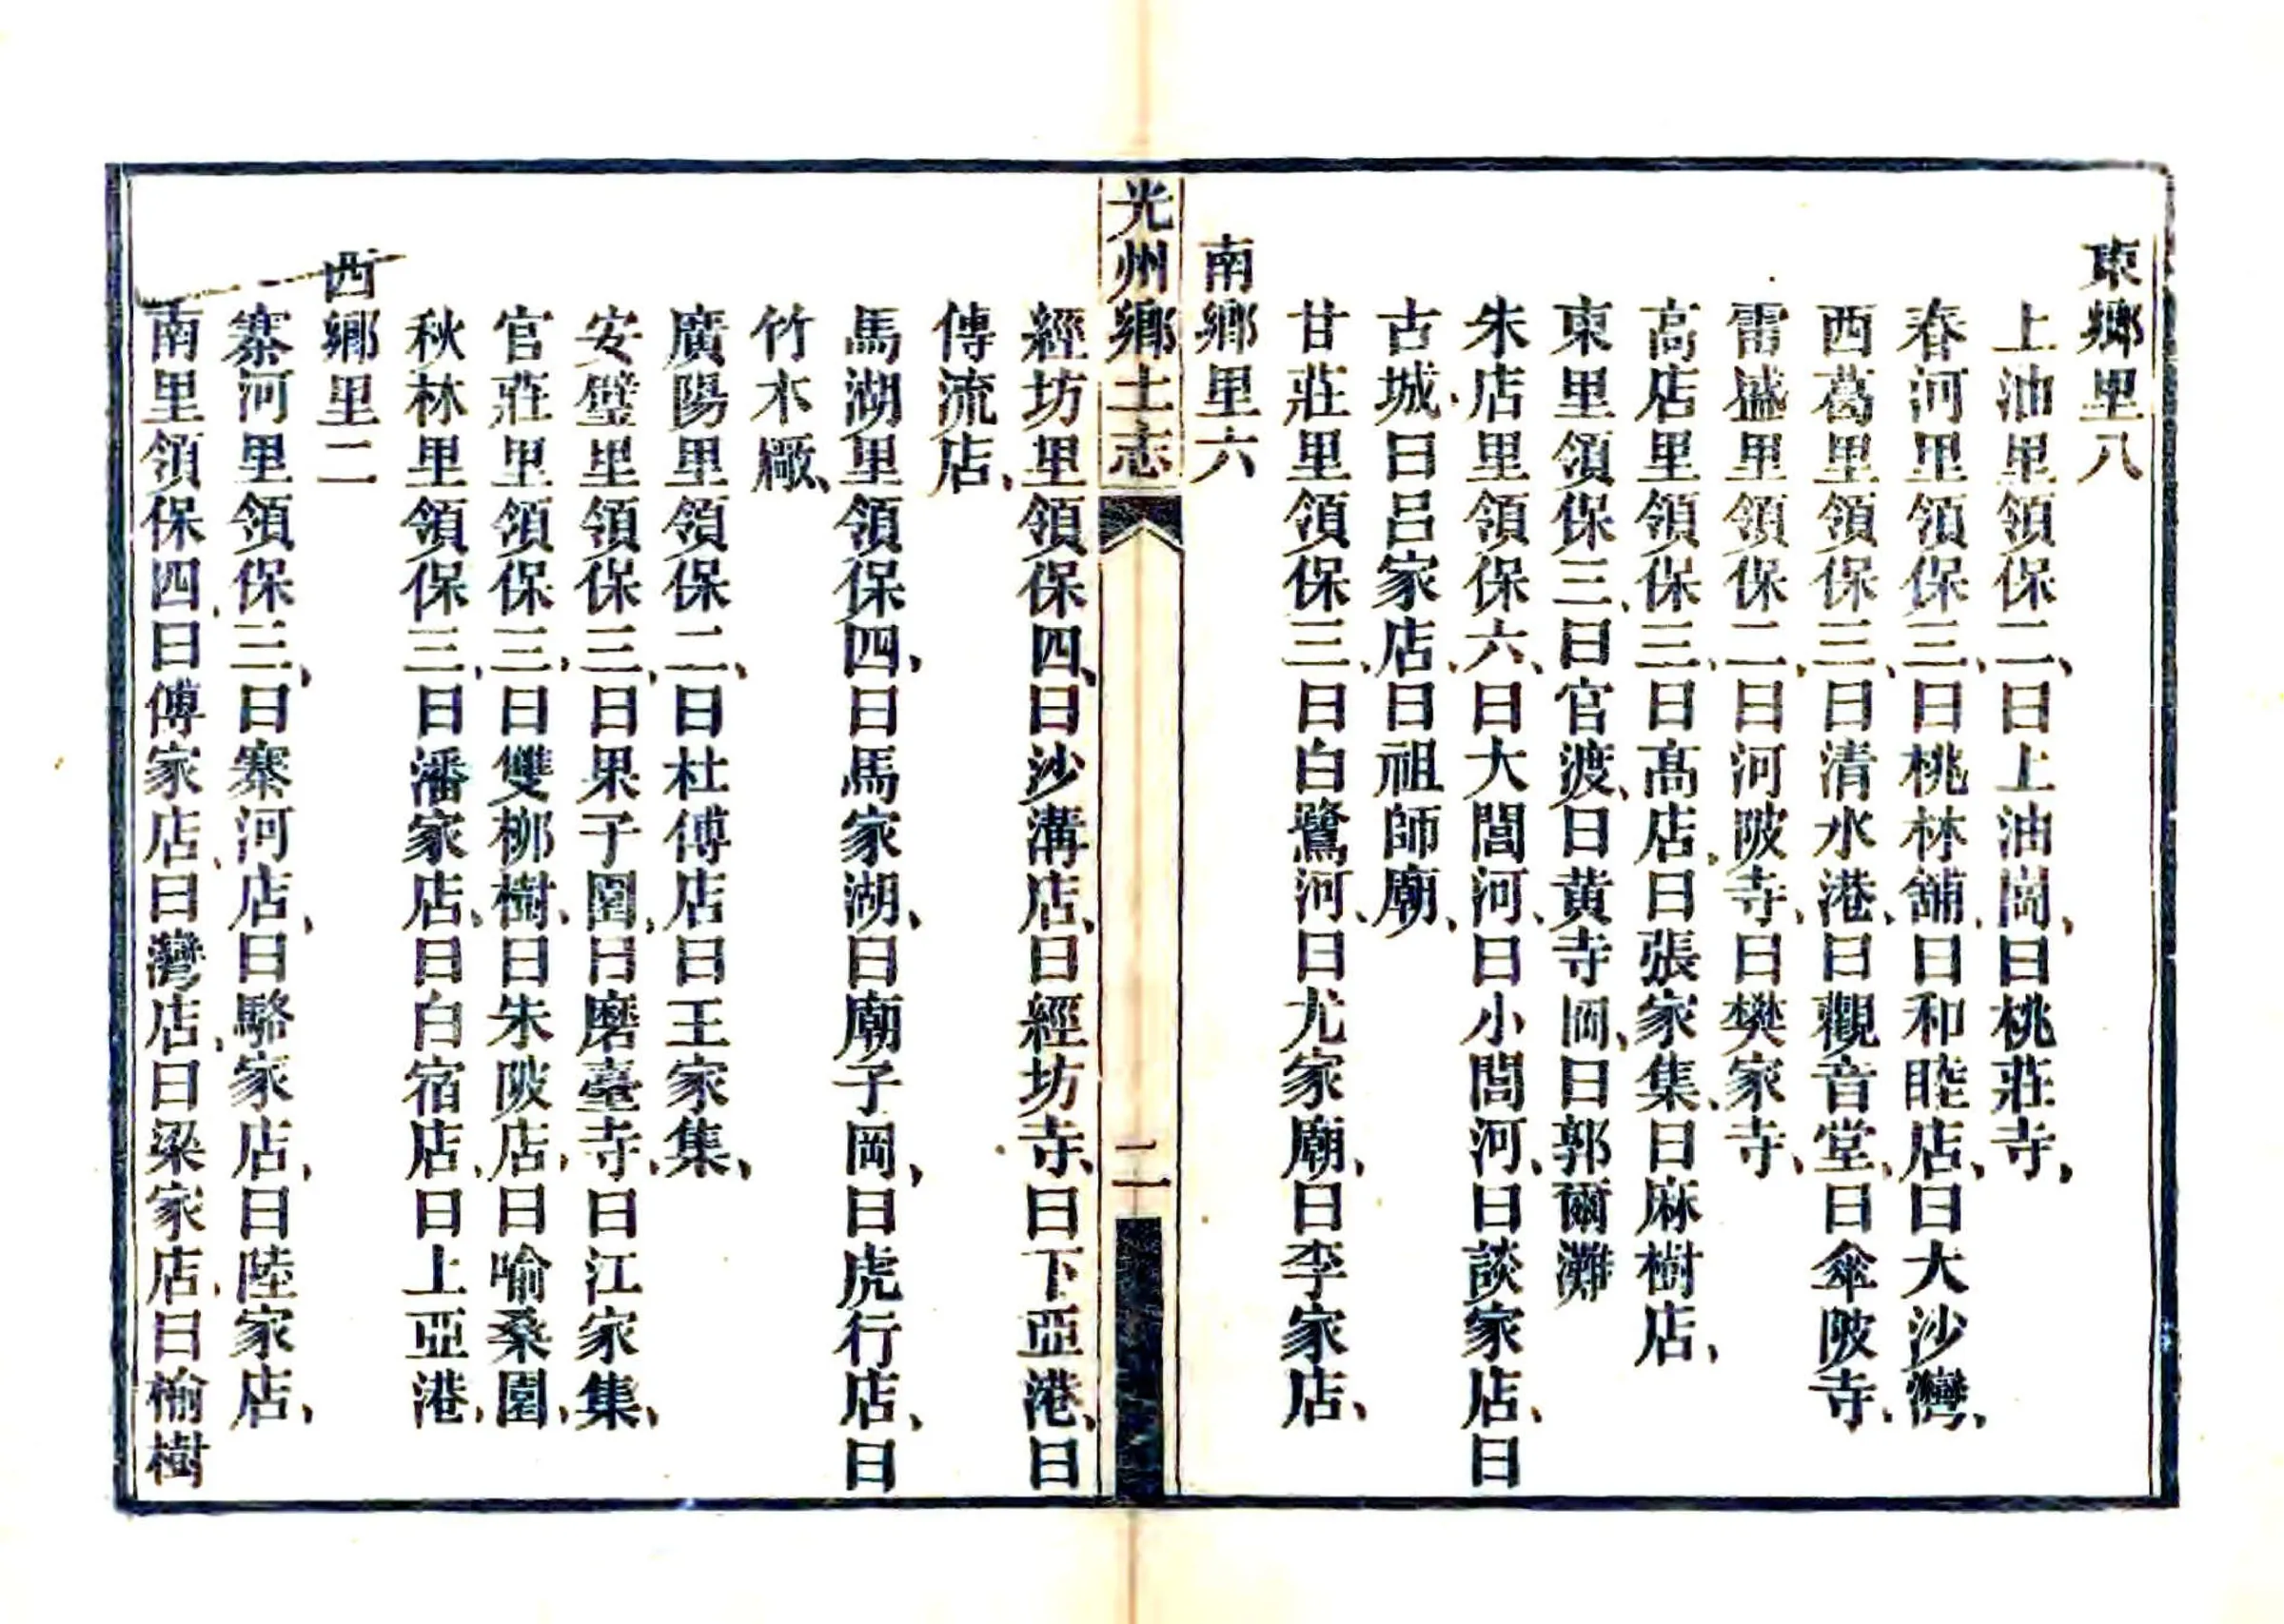 東鄉里八
上油里領保二、曰上油崗、曰桃莊寺、
春河里領保三、曰桃林舖、曰和睦店、曰大沙灣、
西葛里領保三、曰清水港、曰觀音堂、曰傘陂寺、
雷盛里領保二、曰河陂寺、曰樊家寺、
高店里領保三、曰高店、曰張家集、曰麻樹店、
東里領保三、曰官渡、曰黃寺岡、曰郭爾灘
朱店里領保六、曰大閭河、曰小閭河、曰談家店、曰
古城、曰呂家店、曰祖師廟、
甘莊里領保三、曰白鷺河、曰尤家廟、曰李家店、
南鄉里六
光州鄉土志
二
經坊里領保四、曰沙溝店、曰經坊寺、曰下亞港、曰
傅流店、
馬湖里領保四、曰馬家湖、曰廟子岡、曰虎行店、曰
竹木廠、
廣陽里領保二、曰杜傅店曰王家集、
安璧里領保三、曰果子園、曰磨臺寺、曰江家集、
官莊里領保三、曰雙柳樹、曰朱陂店、曰喻桑園、
秋林里領保三、曰潘家店、曰白宿店、曰上亞港、
西鄉里二
寨河里領保三、曰寨河店、曰駱家店、曰陸家店、
南里領保四、曰傅家店、曰灣店、曰梁家店、曰榆樹